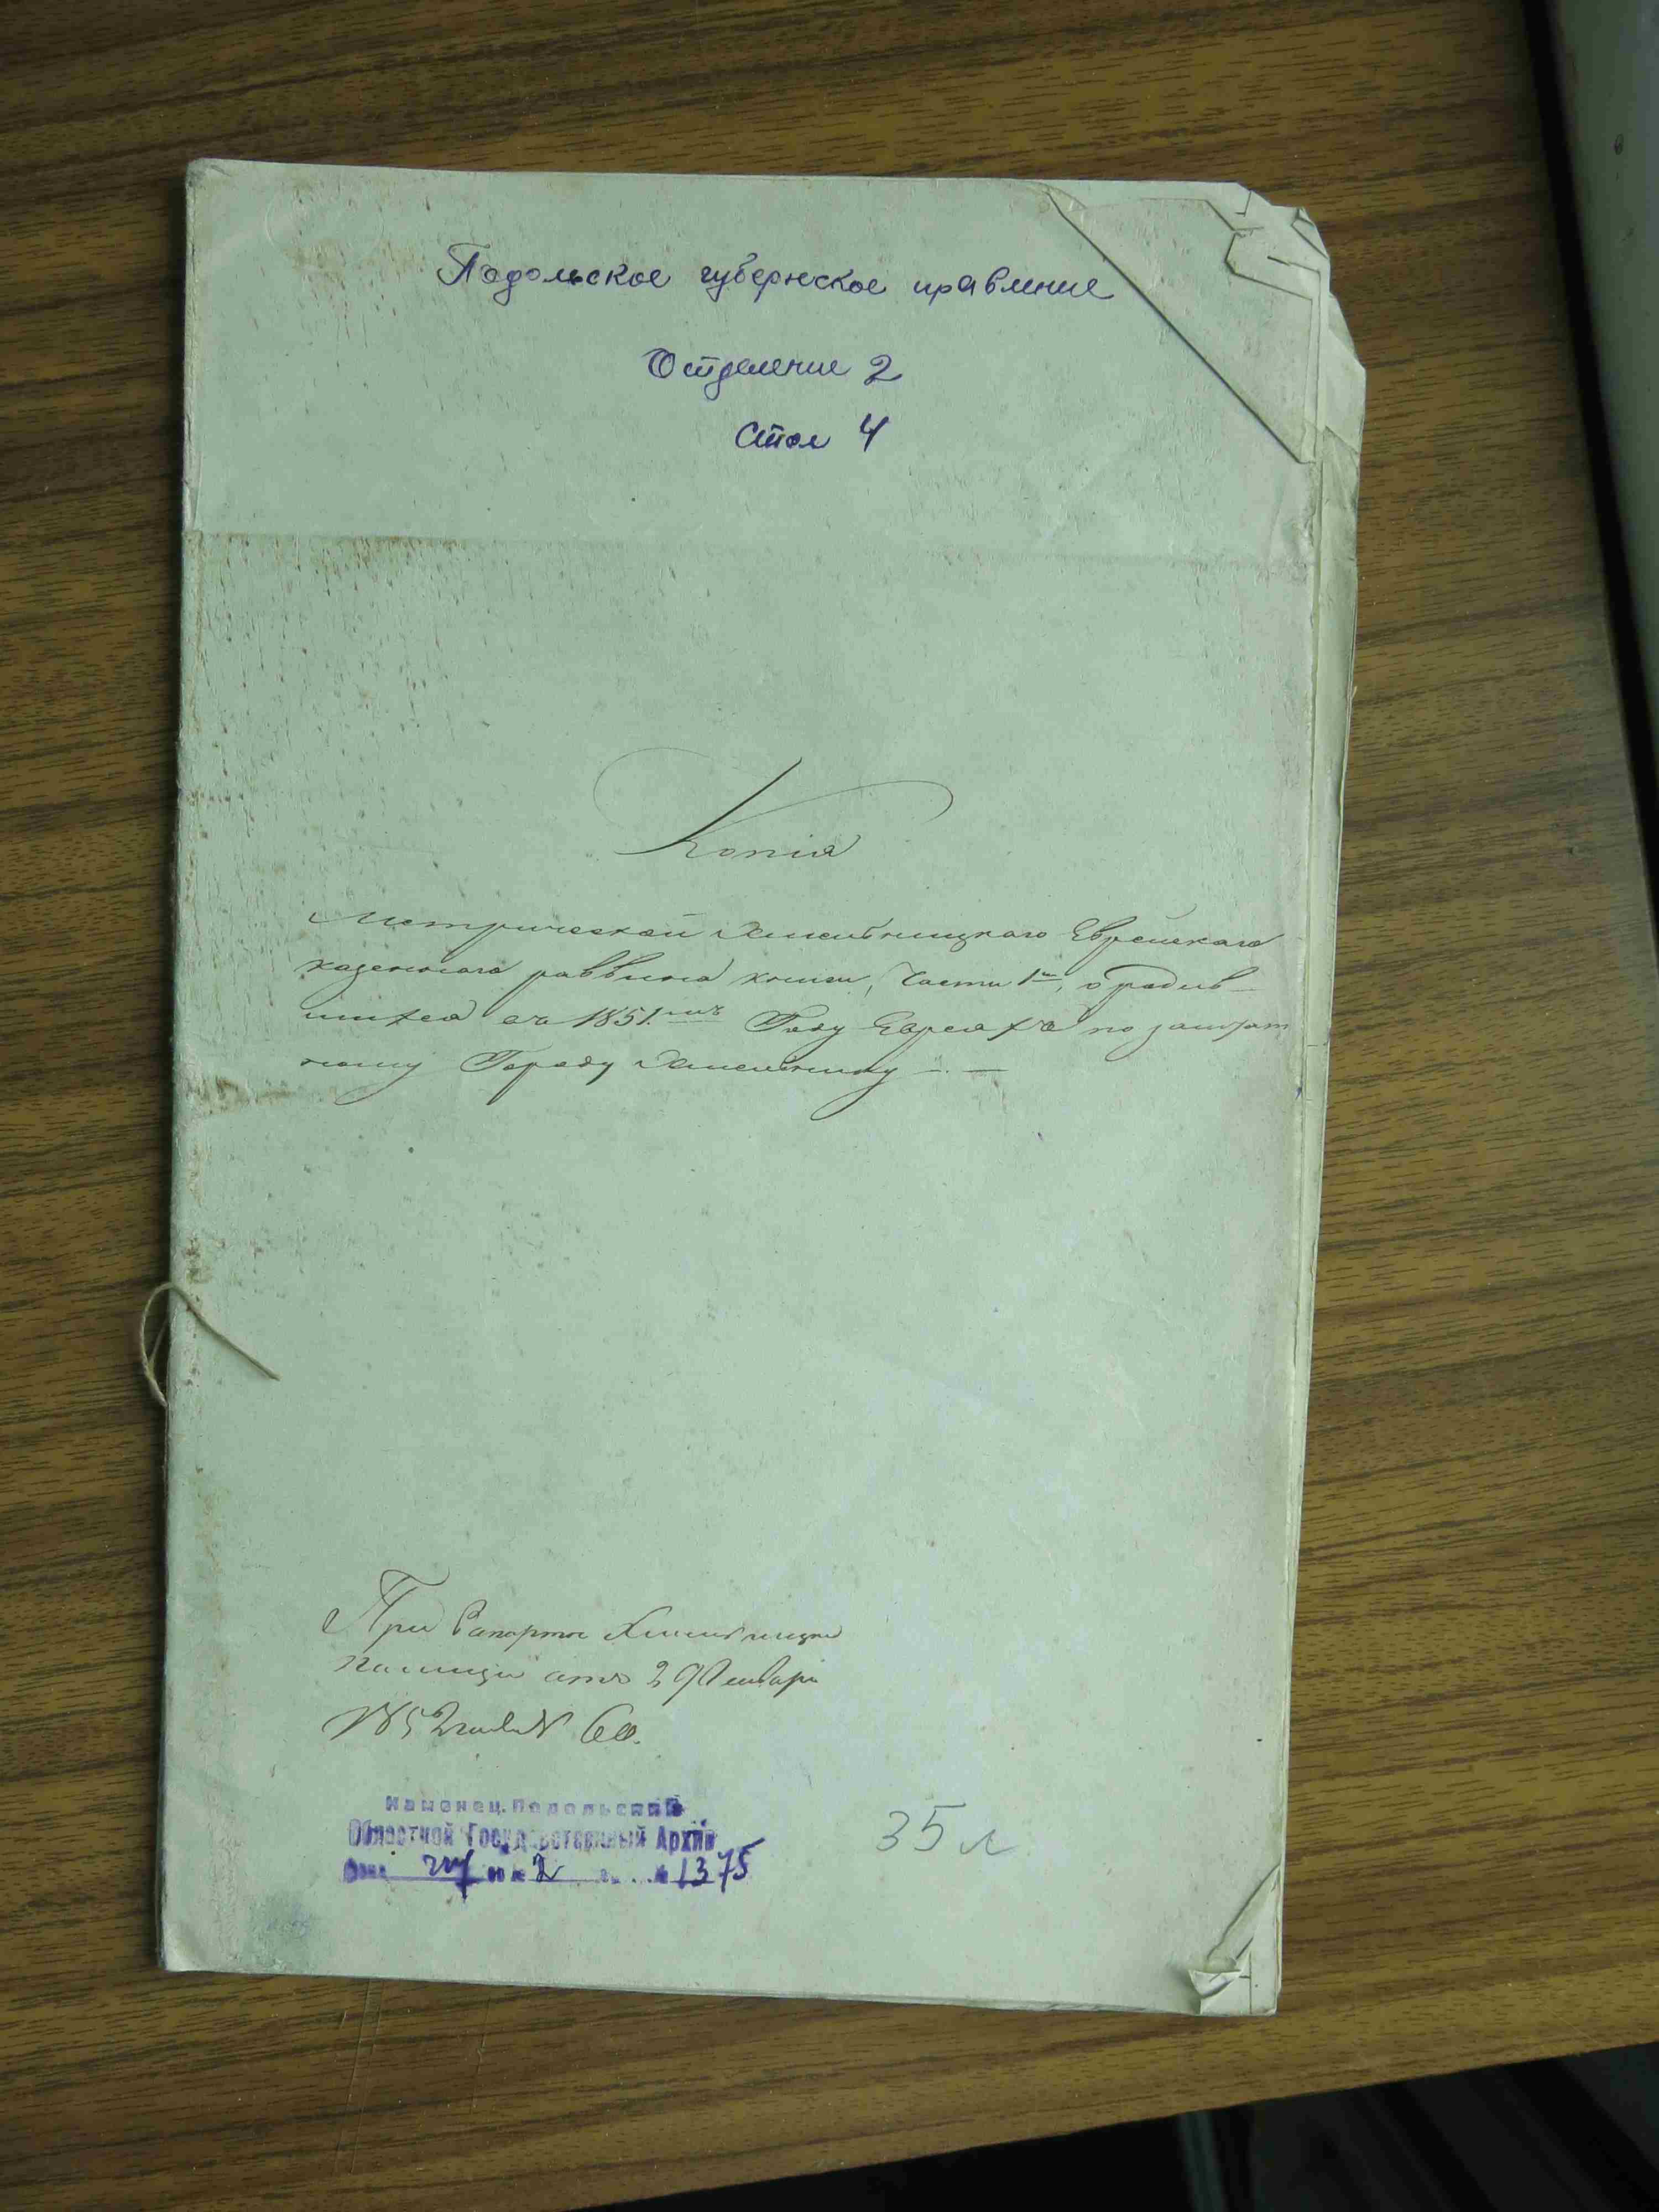 Подольское губернское правление
Отделение 2
Стол 4
Копія
Метрической Хмельницкаго Еврейскаго
казеннаго раввина книги, Части 1й, о родив-
шихся въ 1851мъ Году Евреяхъ по заштат
ному Городу Хмельнику
При Рапорте Хмельницкой
Полиции отъ 29 Января
1852 года № 60.
Каменец-Подольский
Областной Государственный Архив
Фонд 227 оп. 2 № 1375
35 л